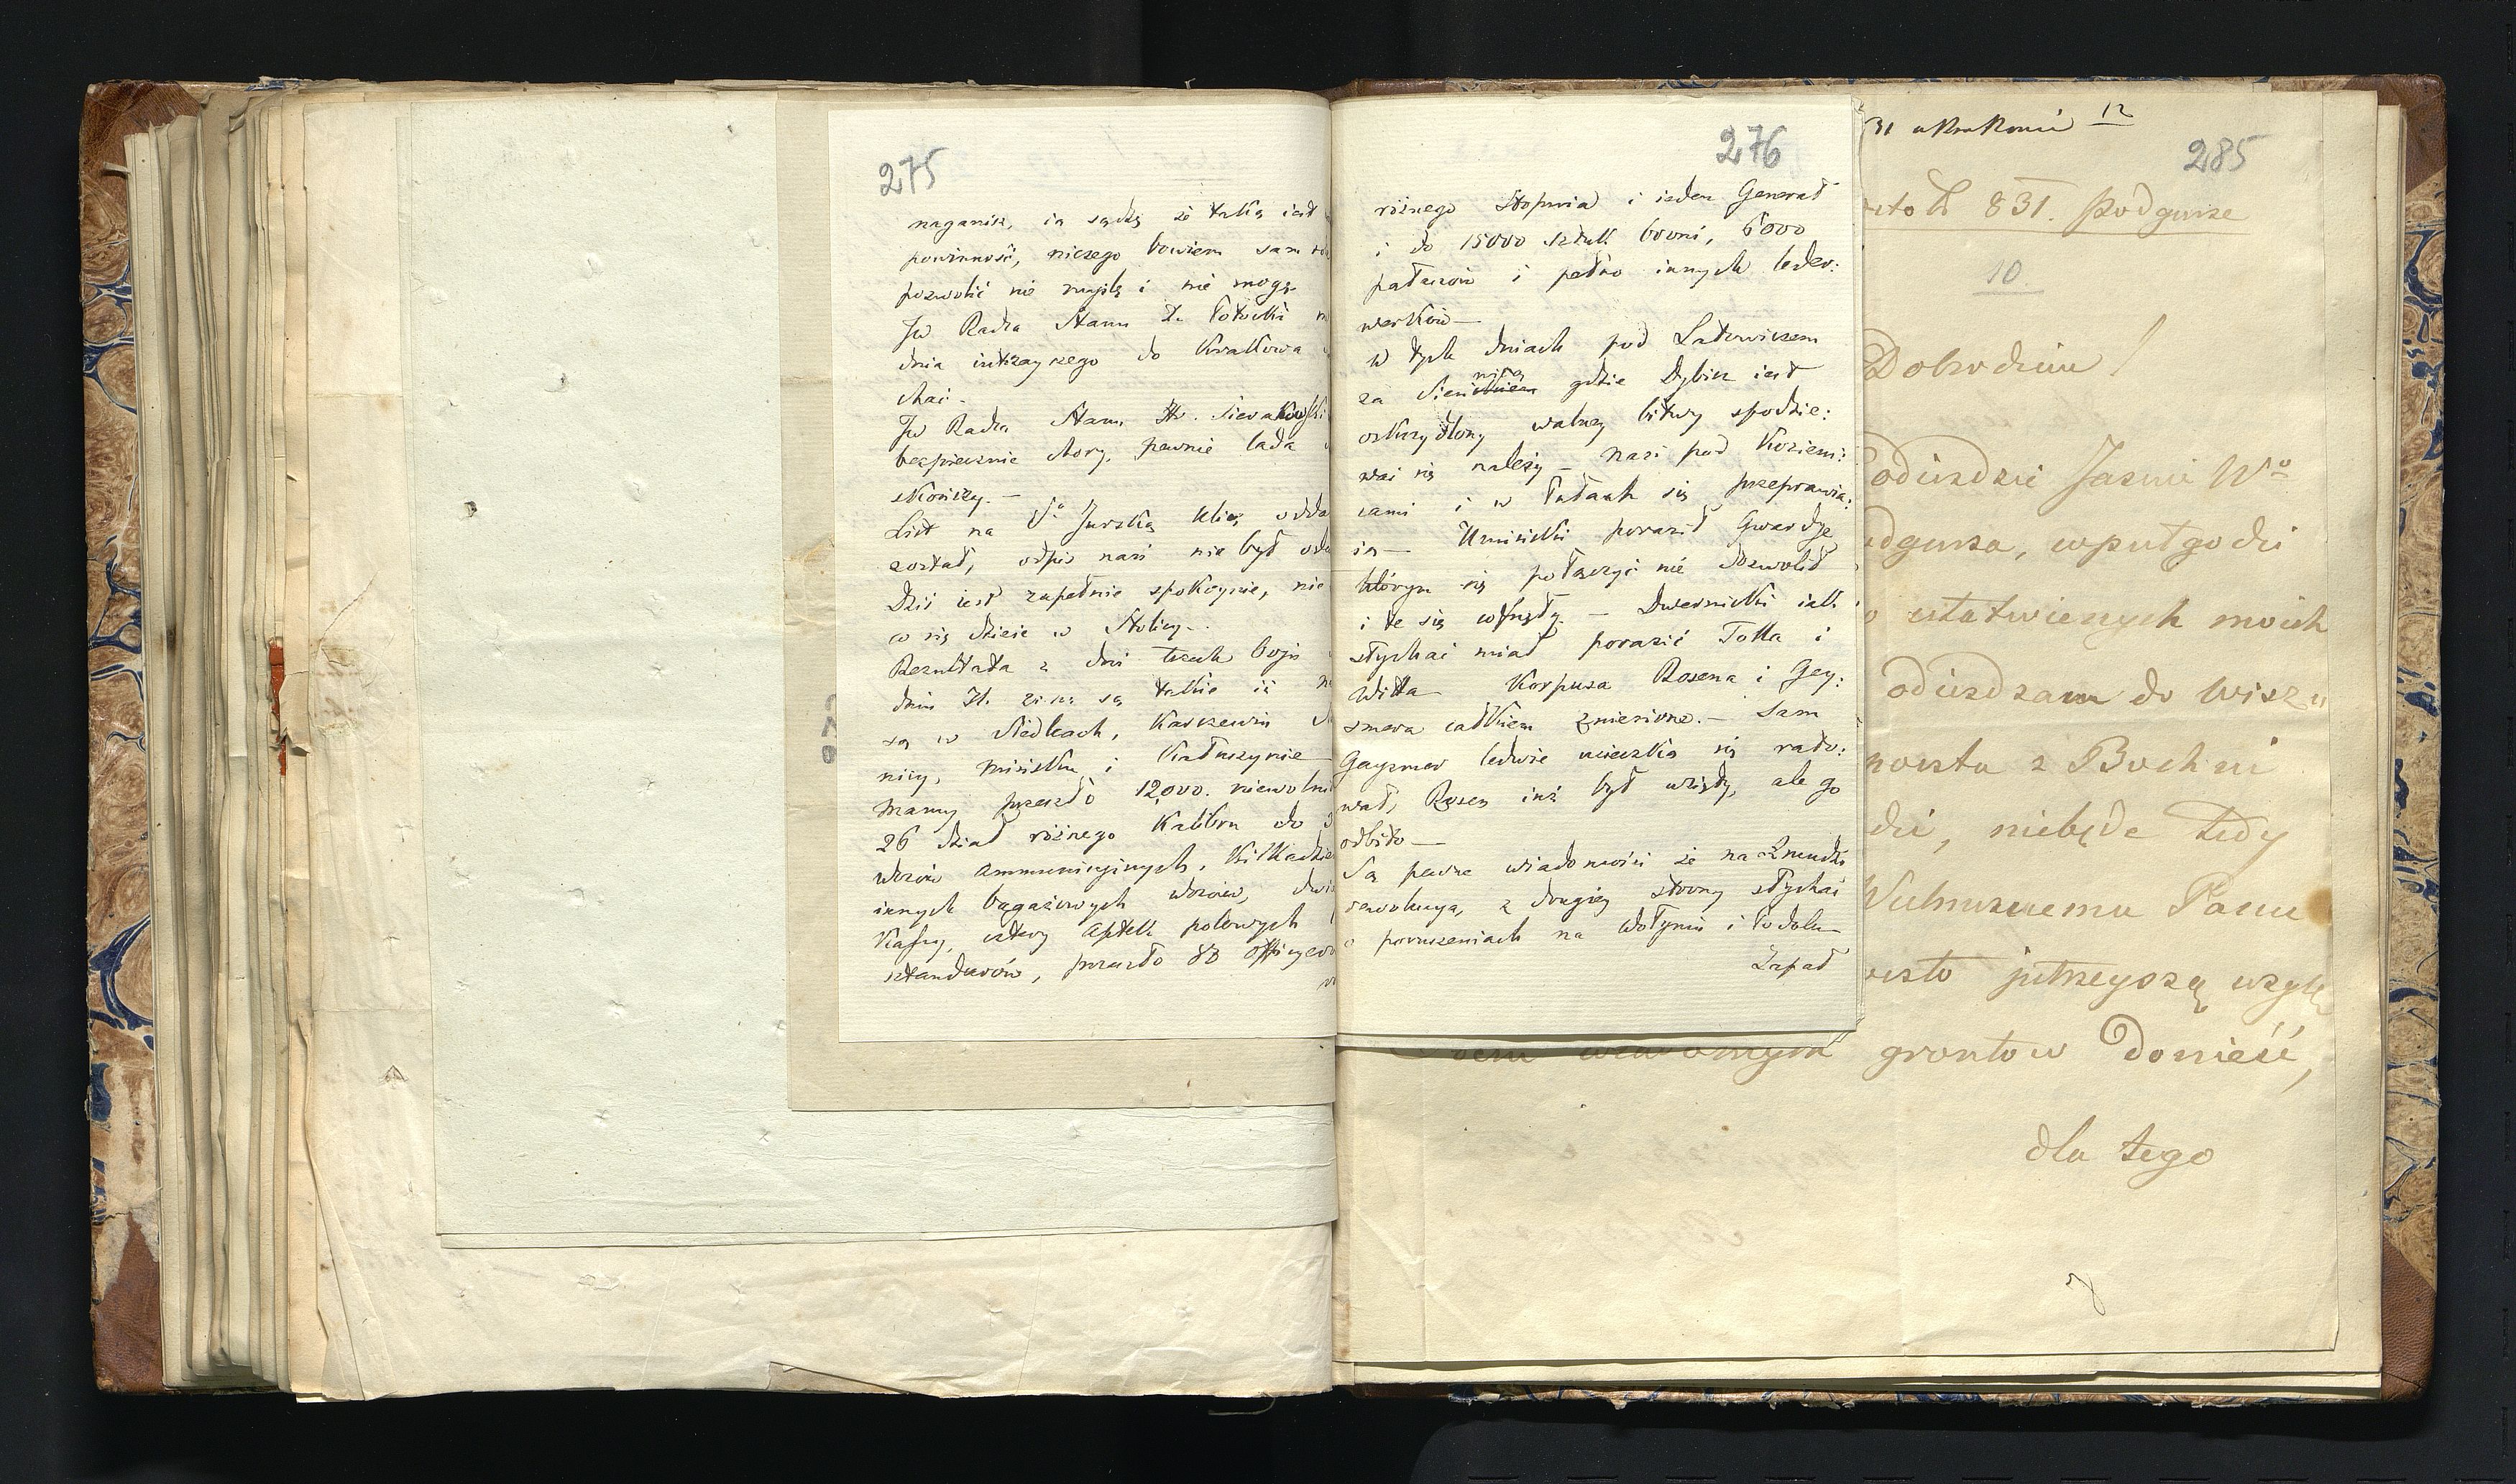 275
naganisz, ia sądzę że taką iest
powinność, niczego bowiem sam
pozwolić nie myślę i nie mogę
JW Radca Stanu Hr. Potocki
dnia intrzayszego do Krakowa
chać.
JW Radca Stanu Hr. Sierakowski
bezpiecznie chory, pewnie lada
skończy. —
List na Ulicę
został, odpis nasi nie był
Dziś iest zupełnie spokoynie, nie
co się dzieie w Stolicy.
Rezultata z dni trzech boju
dnia 31. są takie iż
są w Siedlcach, Karczewiu
nicy, Mińsku i Kałuszynie
mamy przeszło 12,000. niewolni
26 dział różnego Kalibru do
wozów ammunicyinych, Kilkadzie
innych bagażowych wozów,
Kassy, cztery Aptek polowych
sztandarów, przeszło 88 officyerów
276
różnego Stopnia i ieden Generał
i do 15000 sztuk broni, 6000
pałaszów i pełno innych leder:
werków —
w tych dniach pod Latowiczem
za Siennicą gdzie Dybicz iest
oskrzydlony walney bitwy spodzie:
wać się należy — Nasi pod Kozieni:
cami i w Puławach się przeprawia:
ią — Umiński poraził Gwardye
którym się połączyć nie dozwolił
i te się cofnęły. — Dwernicki iak
słychać miał porazić Tolla i
Witta Korpusa Rosena i Gey:
smera całkiem zniesione. — Sam
Gaysmer ledwie ucieczką się rato:
wał, Rosen iuż był wzięty, ale go
odbito —
Są pewne wiadomości że na Żmudzi
rewolucya, z drugiey strony słychać
o poruszeniach na Wołyniu i Podolu —
Zapał
31 w Krakowie 12
285
831. Podgurze
10.
Dobrodzieiu!
odieżdzie Jasnie Wo
dgurza, wpułgodzi
ustatwieniych moich
odieżdzam do Wisz
z Bochni
dzi, niebęde tedy
Wielmożnemu Panu
jutrzeyszą wzglę
gruntow donieść,
dla tego